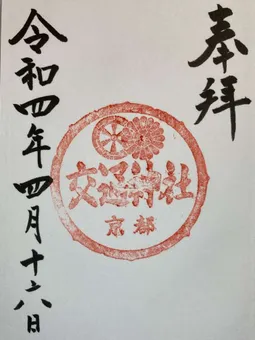 奉拝
交通神社
京都
令和四年四月十六日